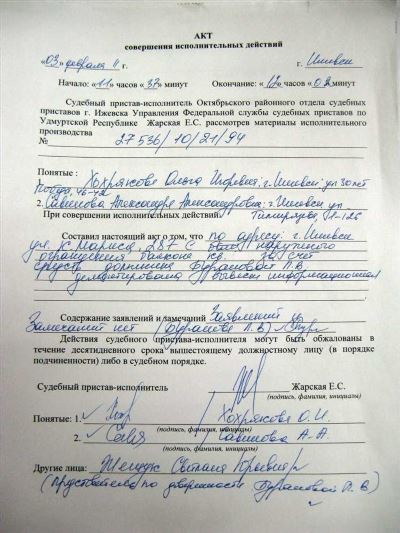 АКТ
совершения исполнительных действий
«03» февраля 11 г. г. Ижевск
Начало: «11» часов «37» минут Окончание: «12» часов «02» минут
Судебный пристав-исполнитель Октябрьского районного отдела судебных
приставов г. Ижевска Управления Федеральной службы судебных приставов по
Удмуртской Республике Жарская Е.С. рассмотрев материалы исполнительного
производства
№ 27536/10/21/94
Понятые :
1. Хохрякова Ольга Игоревна: г. Ижевск ул. 30 лет
Победы,
2. Савинова Александра Александровна: г. Ижевск ул.
При совершении исполнительных действий: 1-126
Составил настоящий акт о том, что по адресу: г. Ижевск
ул. К. Маркса, 287 с наружного
ограждения балкона кв. за счет
средств должника Бурановой Л.В.
демонтирована вывеска информационная
Содержание заявлений и замечаний Заявлений и
Замечаний нет (Буранова Л.В.)
Действия судебного пристава-исполнителя могут быть обжалованы в
течение десятидневного срока вышестоящему должностному лицу (в порядке
подчиненности) либо в судебном порядке.
Судебный пристав-исполнитель Жарская Е.С.
(подпись, фамилия, инициалы)
Понятые: 1. Хохрякова О.И.
(подпись, фамилия, инициалы)
2. Савинова А.А.
(подпись, фамилия, инициалы)
Другие лица: Светлана Юрьевна
(представитель по доверенности Бурановой Л.В)